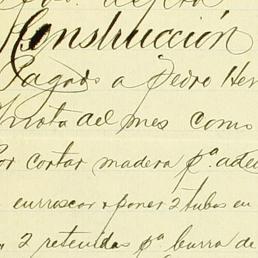 Construcción
Pagado a Pedro Her
del mes como
Por cortar madera pª. ade
enroscar y poner 2 tubos en
" 2 retenidas pª burra de